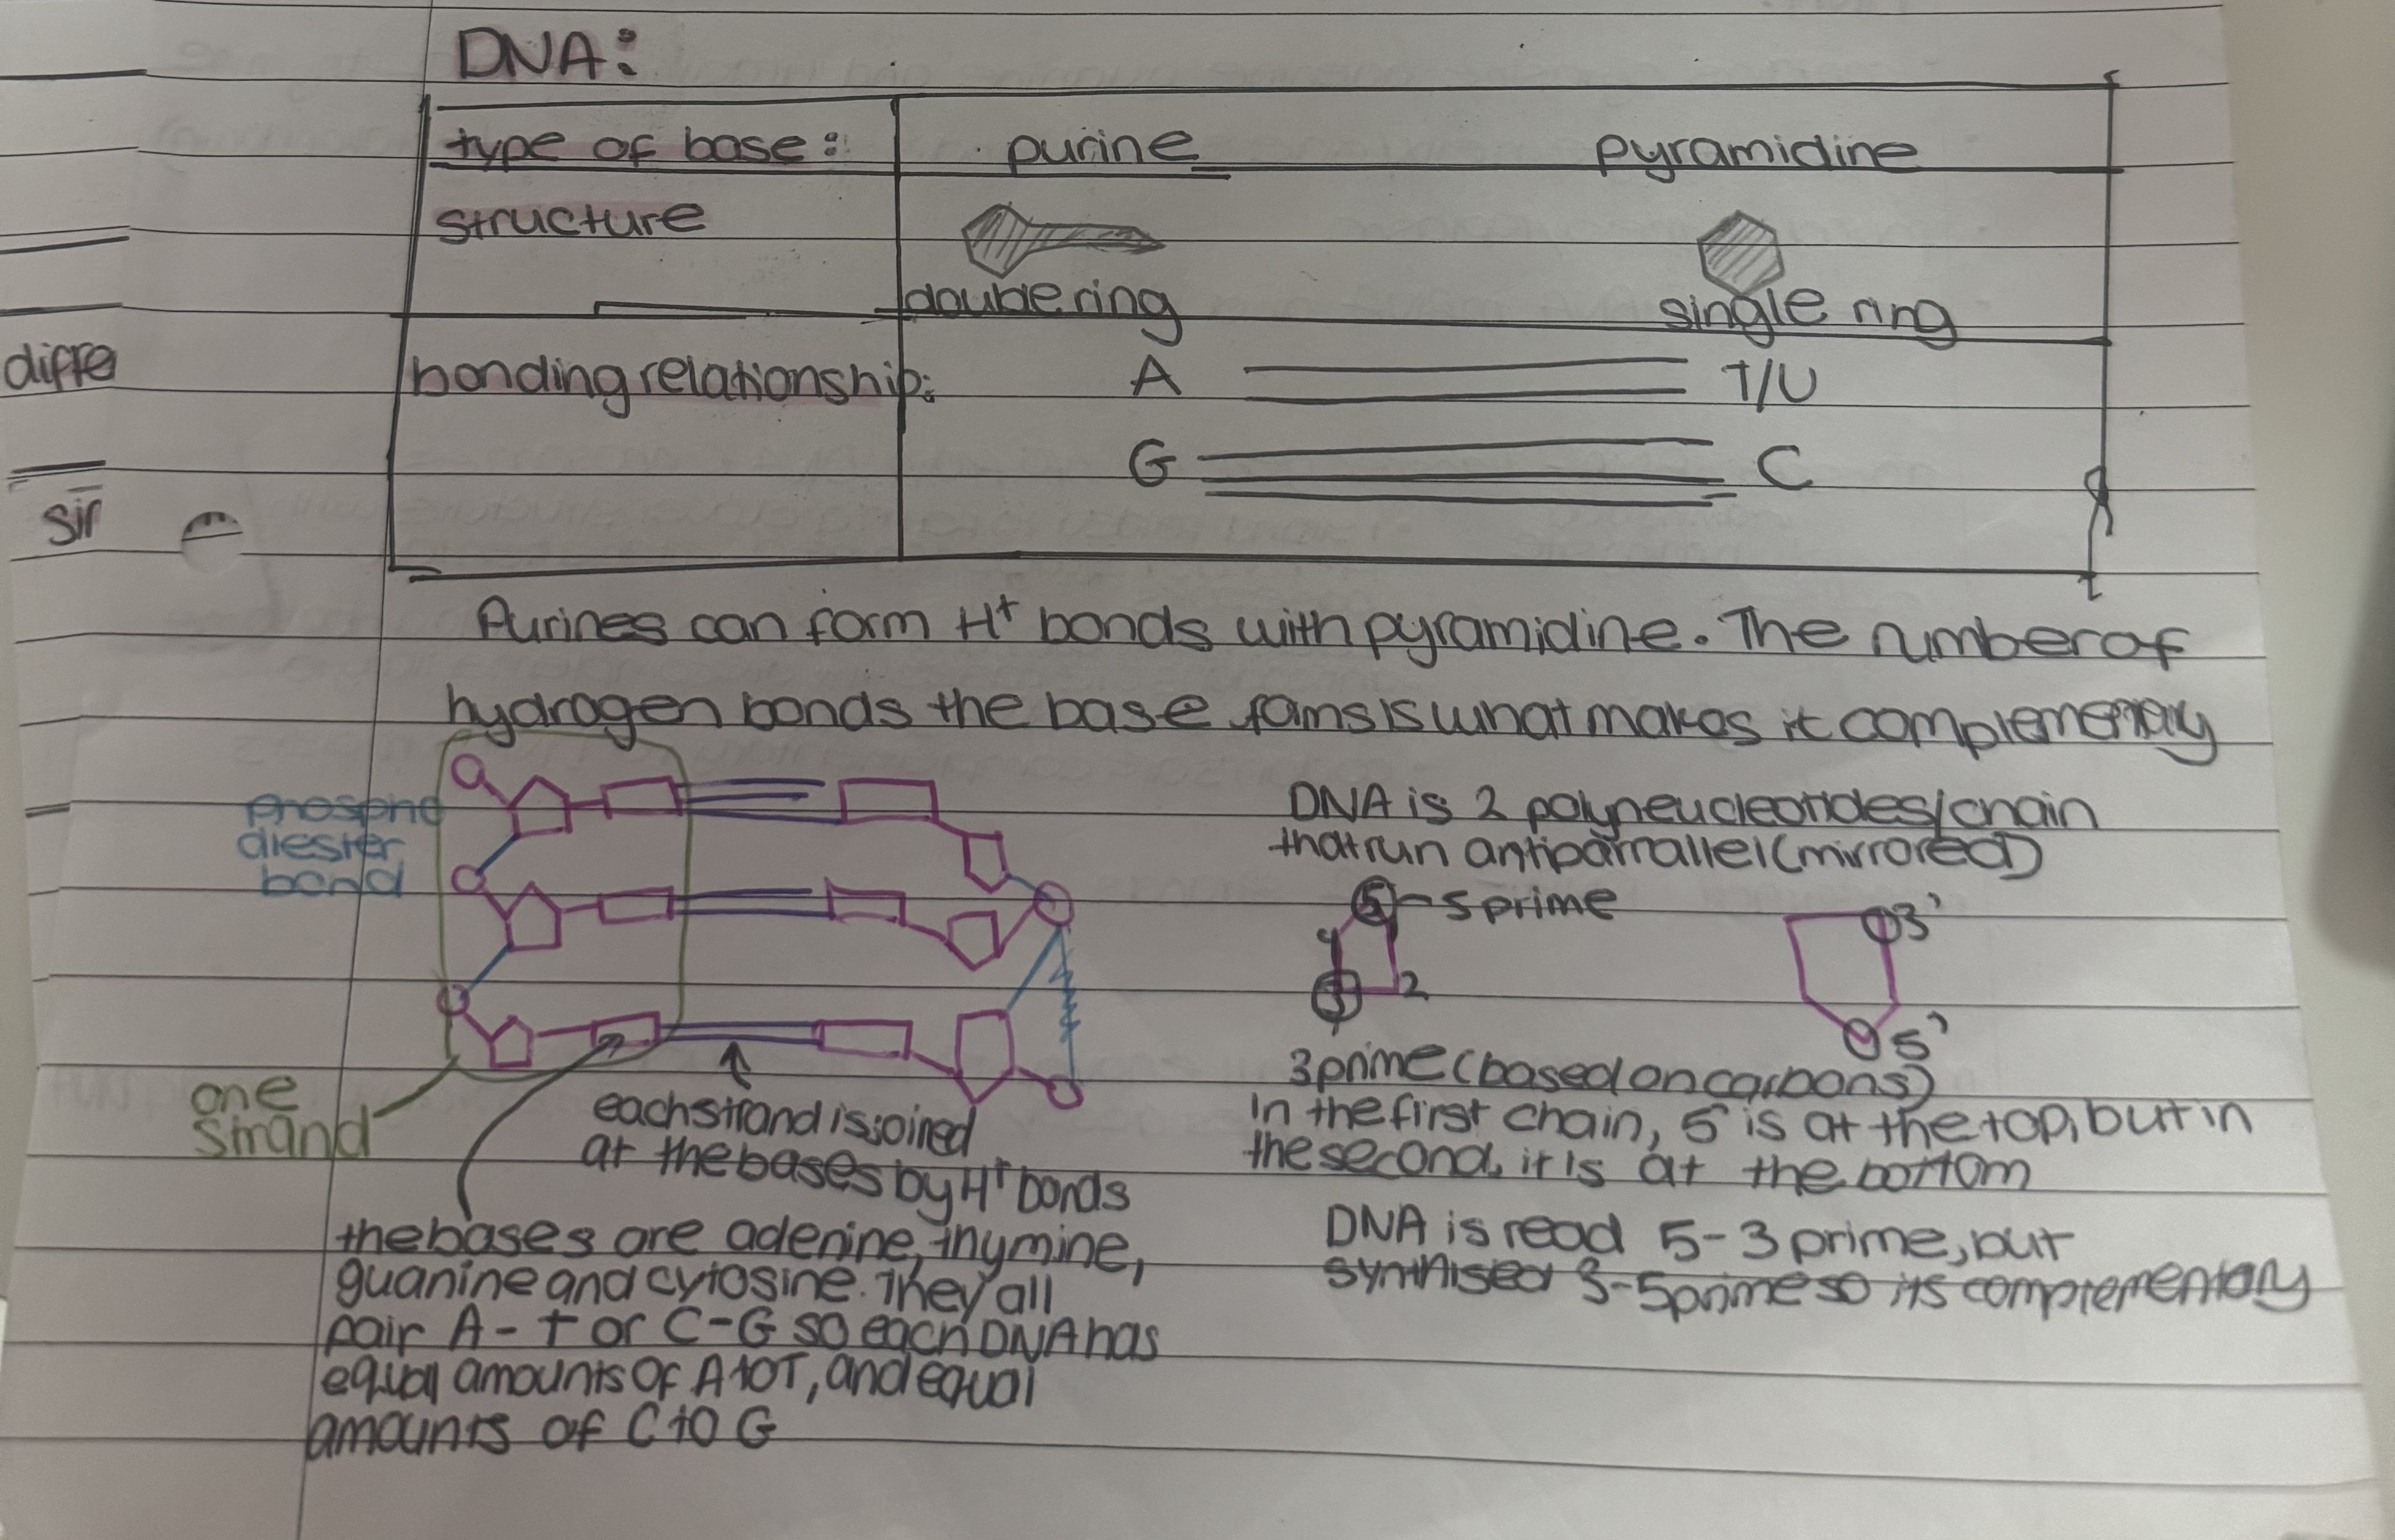 DNA:
type of base: purine pyramidine
structure
double ring single ring
diffe
bonding relationship: A T/U
G C
sir
Purines can form H+ bonds with pyramidine. The number of
hydrogen bonds the base forms is what makes it
phospho
diester
bond
DNA is 2 polyneucleotides/chain
that run antiparrallel (mirrored)
5 - 5 prime
4
3 2
3'
5'
3 prime (based on carbons)
In the first chain, 5 is at the top, but in
the second, it is at the bottom
one
strand
each strand is joined
at the bases by H+ bonds
the bases are adenine, thymine,
guanine and cytosine. They all
pair A-T or C-G so each DNA has
equal amounts of A to T, and equal
amounts of C to G
DNA is read 5-3 prime, but
synthised 3-5 prime so its complementary